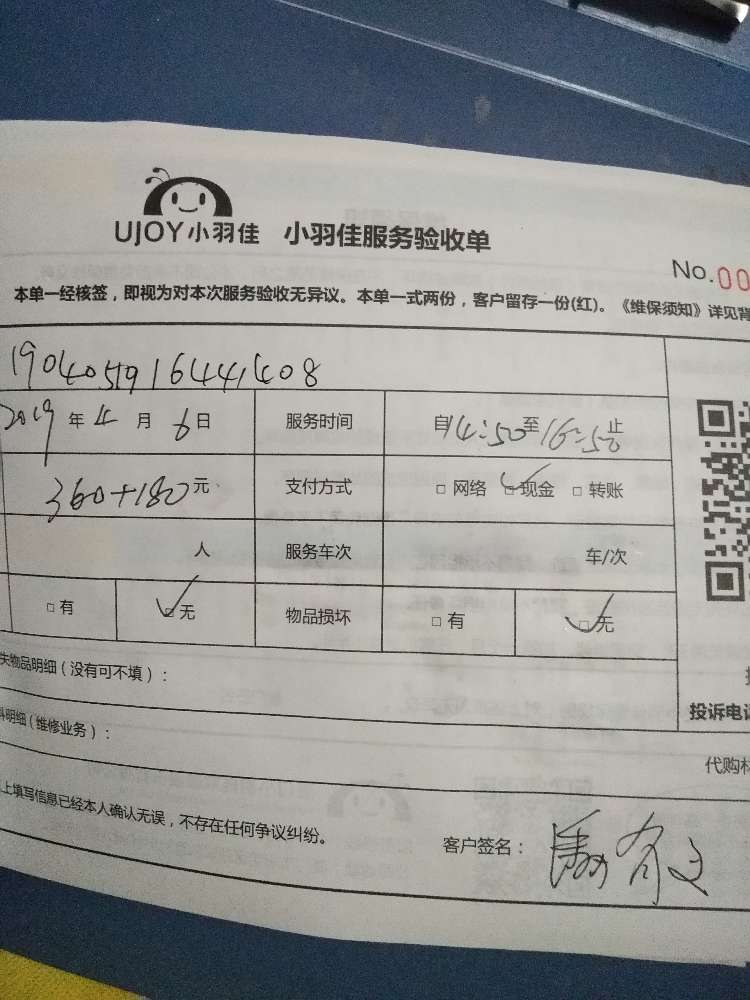 UJOY小羽佳 小羽佳服务验收单
No.00
本单一经核签，即视为对本次服务验收无异议。本单一式两份，客户留存一份(红)。《维保须知》详见背
2019年4月6日 服务时间 自14:50至16:50止
360+180元 支付方式 □网络 ☑现金 □转账
人 服务车次 车/次
□有 ☑无 物品损坏 □有 ☑无
失物品明细（没有可不填）：
料明细（维修业务）：
投诉电话
代购材
上填写信息已经本人确认无误，不存在任何争议纠纷。
客户签名：